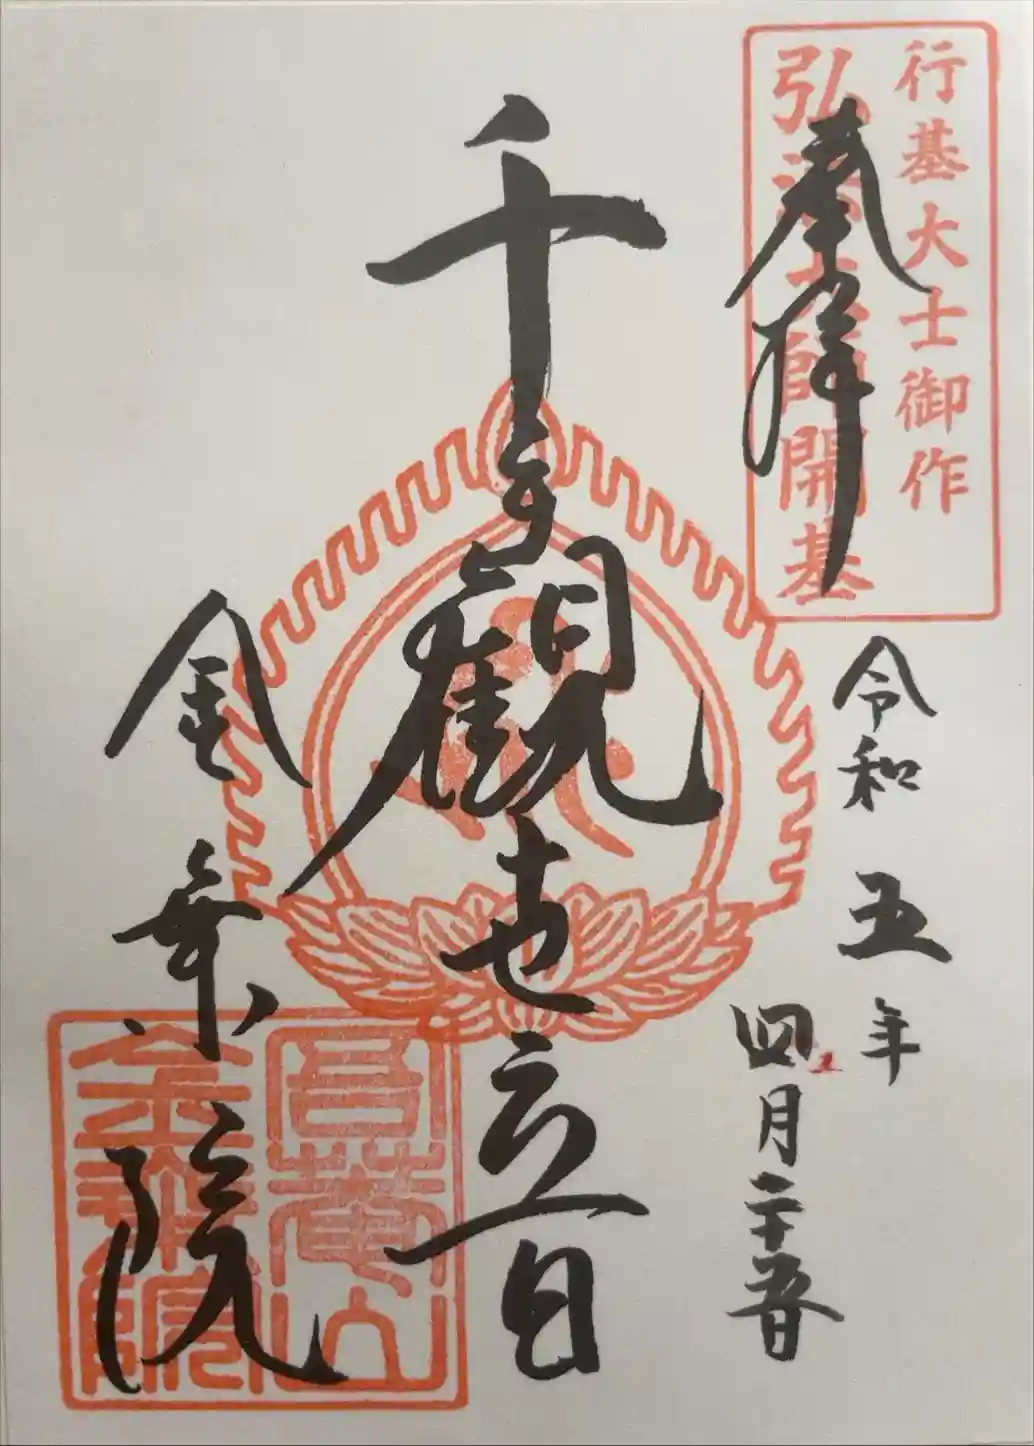 行基大士御作
弘法大師開基
奉拝
令和五年
四月二十五日
千手観世音
金乗院
吾菴山
金乗院